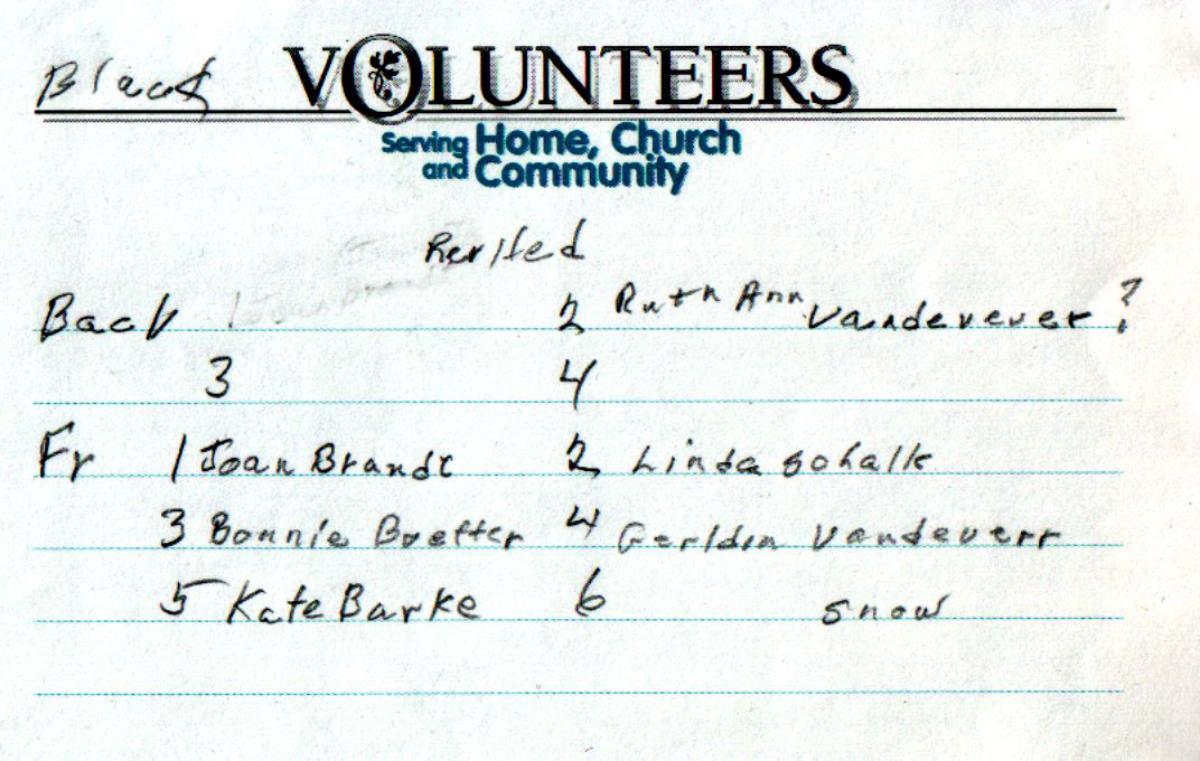 Black VOLUNTEERS
Serving Home, Church
and Community
Back 1 Joan Brandt 2 Ruth Ann Vandevever ?
3 4
Fr 1 Joan Brandt 2 Linda Schalk
3 Bonnie Boetter 4 Gerldin Vandeverr
5 Kate Barke 6 snow